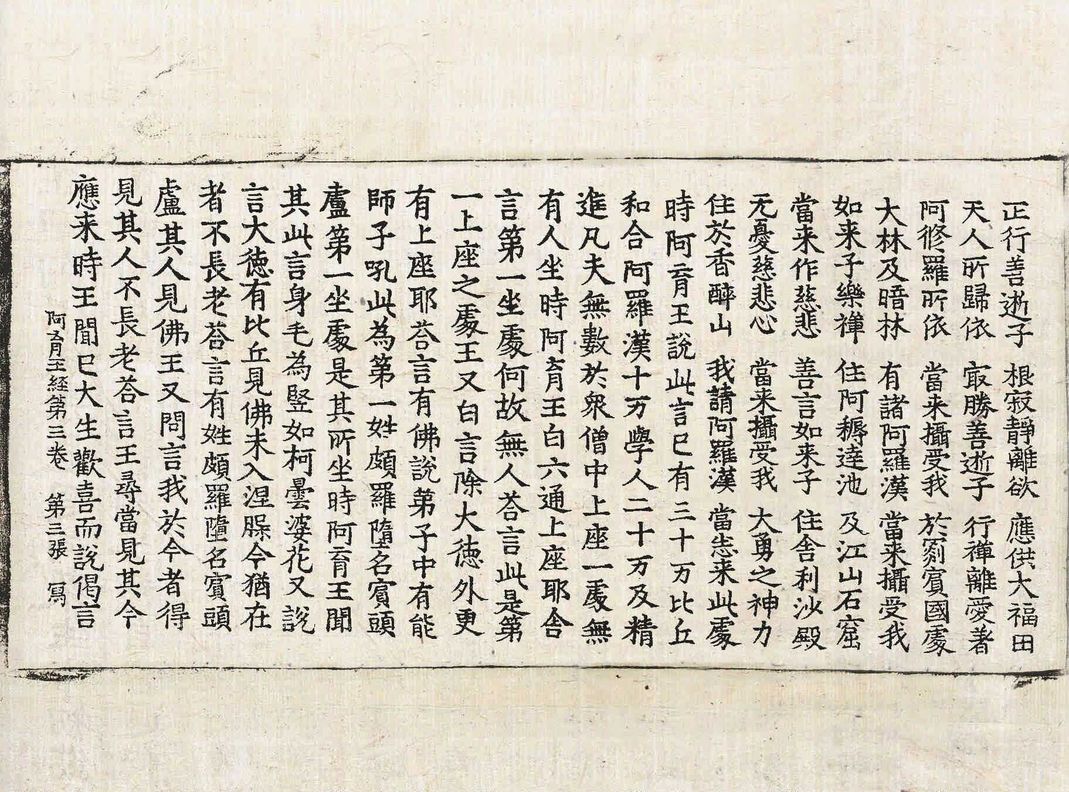 正行善逝子 根寂靜離欲 應供大福田
天人所歸依 㝡勝善逝子 行禪離愛著
阿修羅所依 當来攝受我 於罽賓國處
大林及暗林 有諸阿羅漢 當来攝受我
如来子樂禪 住阿耨達池 及江山石窟
當来作慈悲 善言如来子 住舍利沙殿
无憂慈悲心 當来攝受我 大勇之神力
住於香醉山 我請阿羅漢 當悉来此處
時阿育王說此言已有三十万比丘
和合阿羅漢十万學人二十万及精
進凡夫無數於衆僧中上座一處無
有人坐時阿育王白六通上座耶舍
言第一坐處何故無人荅言此是第
一上座之處王又白言除大德外更
有上座耶荅言有佛說弟子中有能
師子吼此為第一姓頗羅墮名賓頭
盧第一坐處是其所坐時阿育王聞
其此言身毛為竪如柯曇婆花又說
言大德有比丘見佛未入涅槃今猶在
者不長老荅言有姓頗羅墮名賓頭
盧其人見佛王又問言我於今者得
見其人不長老荅言王尋當見其今
應来時王聞已大生歡喜而說偈言
阿育王經第三卷 第三張 寫